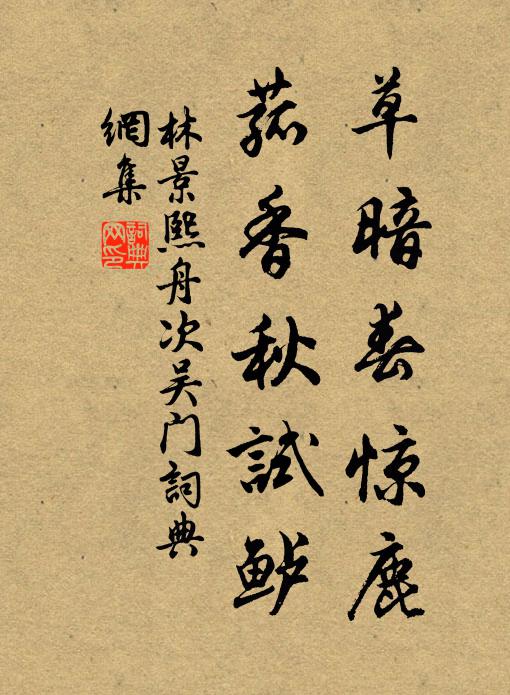 草暗春惊鹿
菰香秋試鲈
林景熙舟次吴门詞典
網集
詞典
网印